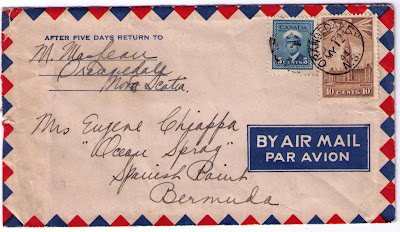 AFTER FIVE DAYS RETURN TO
M. MacLean
Orangedale
Nova Scotia
CANADA
5 CENTS 5
10 CENTS 10
Mrs Eugene Chiappa
"Ocean Spray"
Spanish Point
Bermuda
BY AIR MAIL
PAR AVION